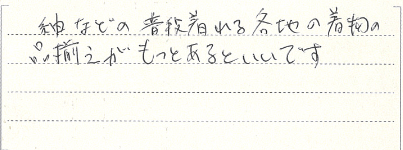 紬などの普段着れる各地の着物の
品揃えがもっとあるといいです